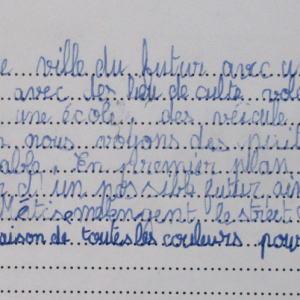 e ville du futur avec u
avec des lieu de culte vol
une école, des véicule
nous voyons des
able. En premier plan,
d'un possible futur
le street
aison de toutes les couleurs pour